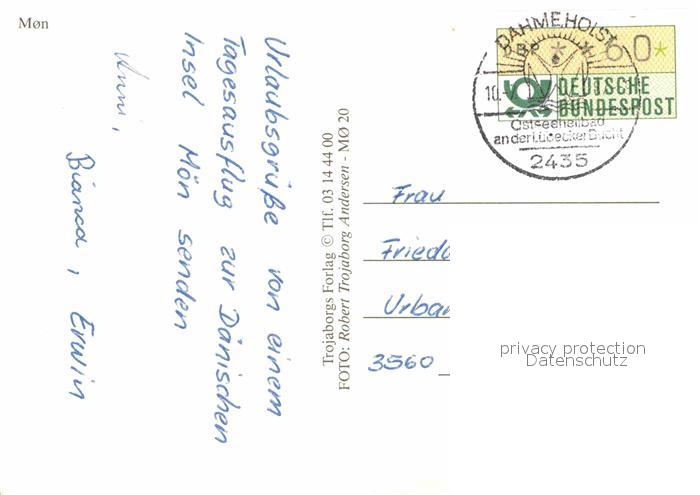 Møn
Urlaubsgrüße von einem
Tagesausflug zur Dänischen
Insel Mön senden
Bianca, Erwin
Trojaborgs Forlag © Tlf. 03 14 44 00
FOTO: Robert Trojaborg Andersen - MØ 20
DAHME, HOLST
DBP * * 60*
10.-
DEUTSCHE
BUNDESPOST
Ostseeheilbad
an der Lübecker Bucht
2435
Frau
Fried
Urba
3560
privacy protection
Datenschutz